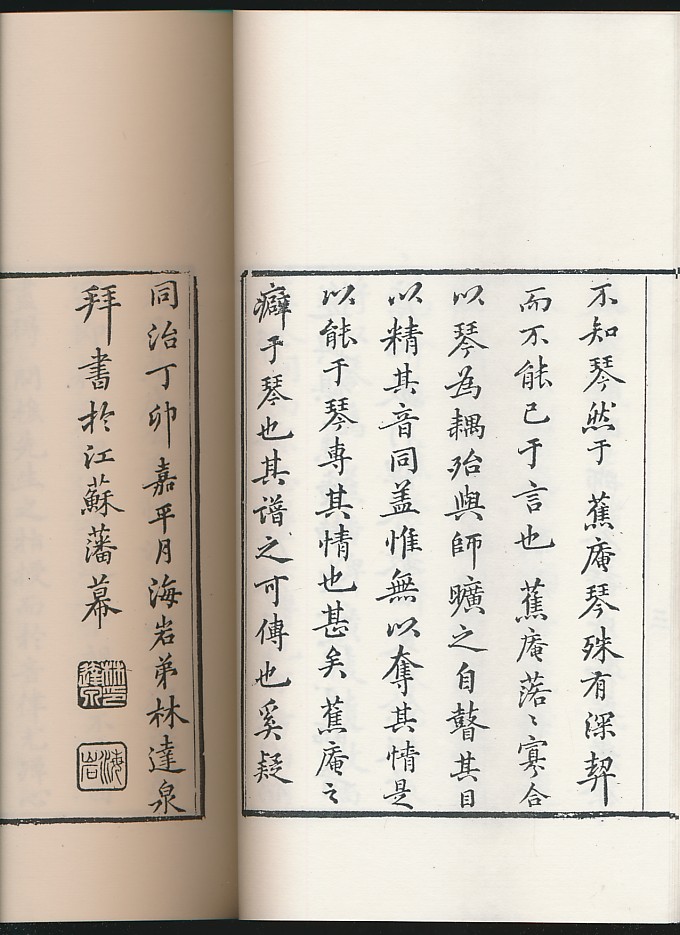 不知琴然于蕉庵琴殊有深契
而不能已于言也蕉庵落〻寡合
以琴為耦殆與師曠之自瞽其目
以精其音同盖惟無以奪其情是
以能于琴專其情也甚矣蕉庵之
癖于琴也其譜之可傳也奚疑
同治丁卯嘉平月海岩弟林達泉
拜書於江蘇藩幕
林印達泉
海岩